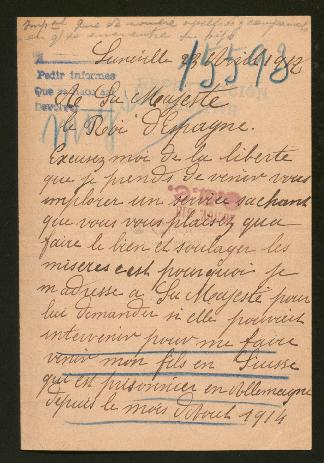 Lunéville
15593
Pedir informes
A Sa Majesté
le Roi d'Espagne.
Excusez moi de la liberté
que je prends de venir vous
implorer un service sachant
que vous vous plaisez qu'a
faire le bien et soulager les
miseres c'est pourquoi je
m'adresse a Sa Majesté pour
lui demander si elle pouvait
intervenir pour me faire
venir mon fils en Suisse
qui est prisonnier en Allemagne
depuis le mois d'Aout 1914